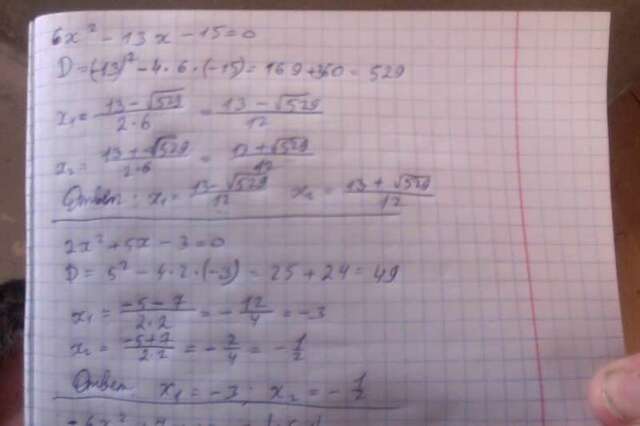 6x² - 13x - 15 = 0
D = (-13)² - 4·6·(-15) = 169 + 360 = 529
x₁ = (13 - √529)/(2·6) = (13 - √529)/12
x₂ = (13 + √529)/(2·6) = (13 + √529)/12
Ответ: x₁ = (13 - √529)/12 x₂ = (13 + √529)/12
2x² + 5x - 3 = 0
D = 5² - 4·2·(-3) = 25 + 24 = 49
x₁ = (-5 - 7)/(2·2) = -12/4 = -3
x₂ = (-5 + 7)/(2·2) = -2/4 = -1/2
Ответ: x₁ = -3; x₂ = -1/2